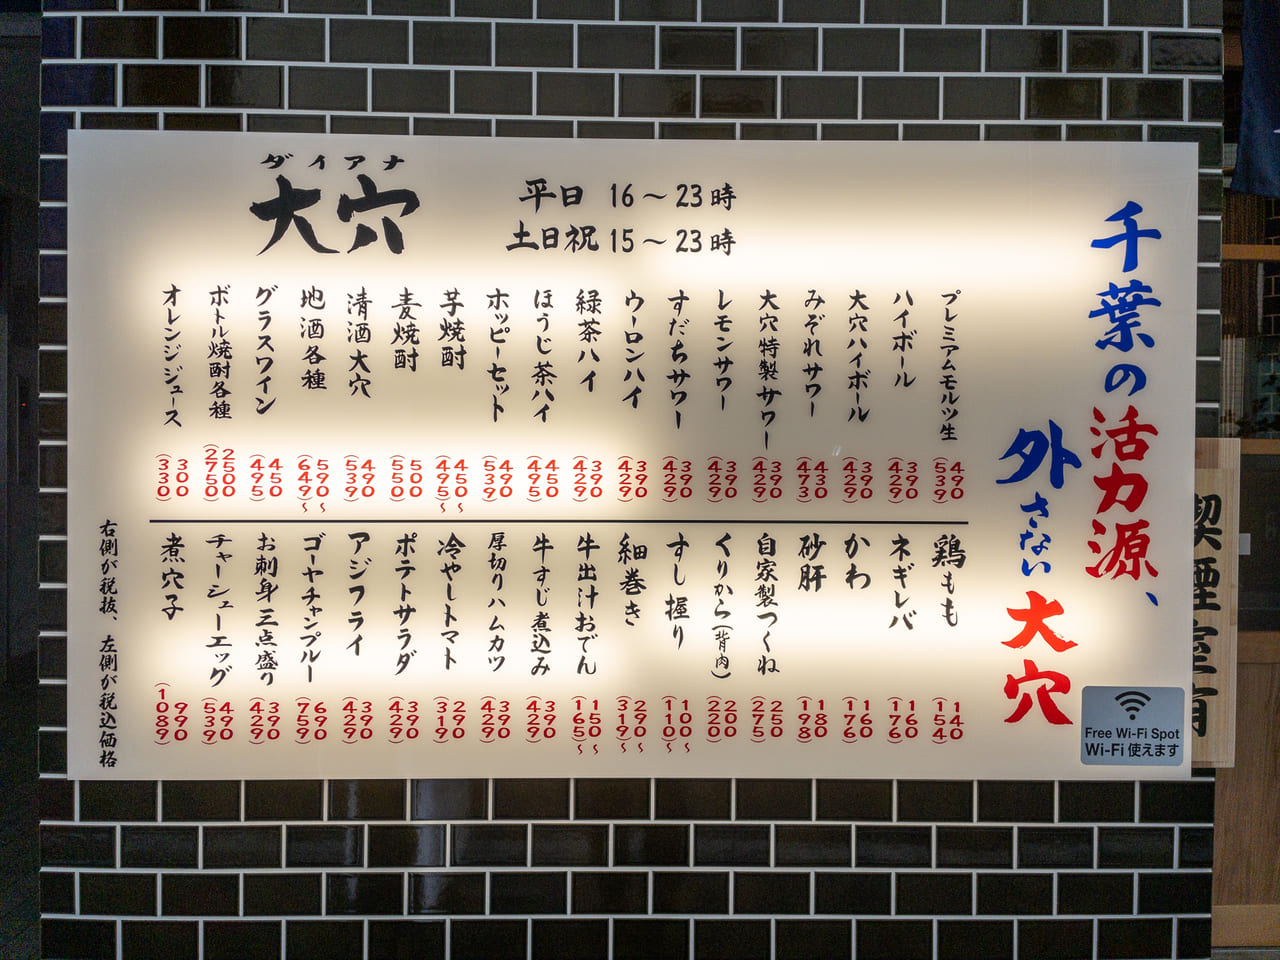 千葉の活力源、
外さない大穴
ダイアナ
大穴
平日 16〜23時
土日祝 15〜23時
プレミアムモルツ生 490 (539)
ハイボール 390 (429)
大穴ハイボール 390 (429)
みぞれサワー 430 (473)
大穴特製サワー 390 (429)
レモンサワー 390 (429)
すだちサワー 390 (429)
ウーロンハイ 390 (429)
緑茶ハイ 390 (429)
ほうじ茶ハイ 450 (495)
ホッピーセット 490 (539)
芋焼酎 450〜 (495)〜
麦焼酎 500 (550)
清酒大穴 490 (539)
地酒各種 590〜 (649)〜
グラスワイン 450 (495)
ボトル焼酎各種 2500 (2750)
オレンジジュース 300 (330)
鶏もも 140 (154)
ネギレバ 160 (176)
かわ 160 (176)
砂肝 180 (198)
自家製つくね 250 (275)
くりから(背肉) 200 (220)
すし握り 100〜 (110)〜
細巻き 290〜 (319)〜
牛出汁おでん 150〜 (165)〜
牛すじ煮込み 390 (429)
厚切りハムカツ 390 (429)
冷やしトマト 290 (319)
ポテトサラダ 390 (429)
アジフライ 390 (429)
ゴーヤチャンプルー 690 (759)
お刺身三点盛り 390 (429)
チャーシューエッグ 490 (539)
煮穴子 990 (1089)
右側が税抜、左側が税込価格
Free Wi-Fi Spot
Wi-Fi 使えます
喫煙室有